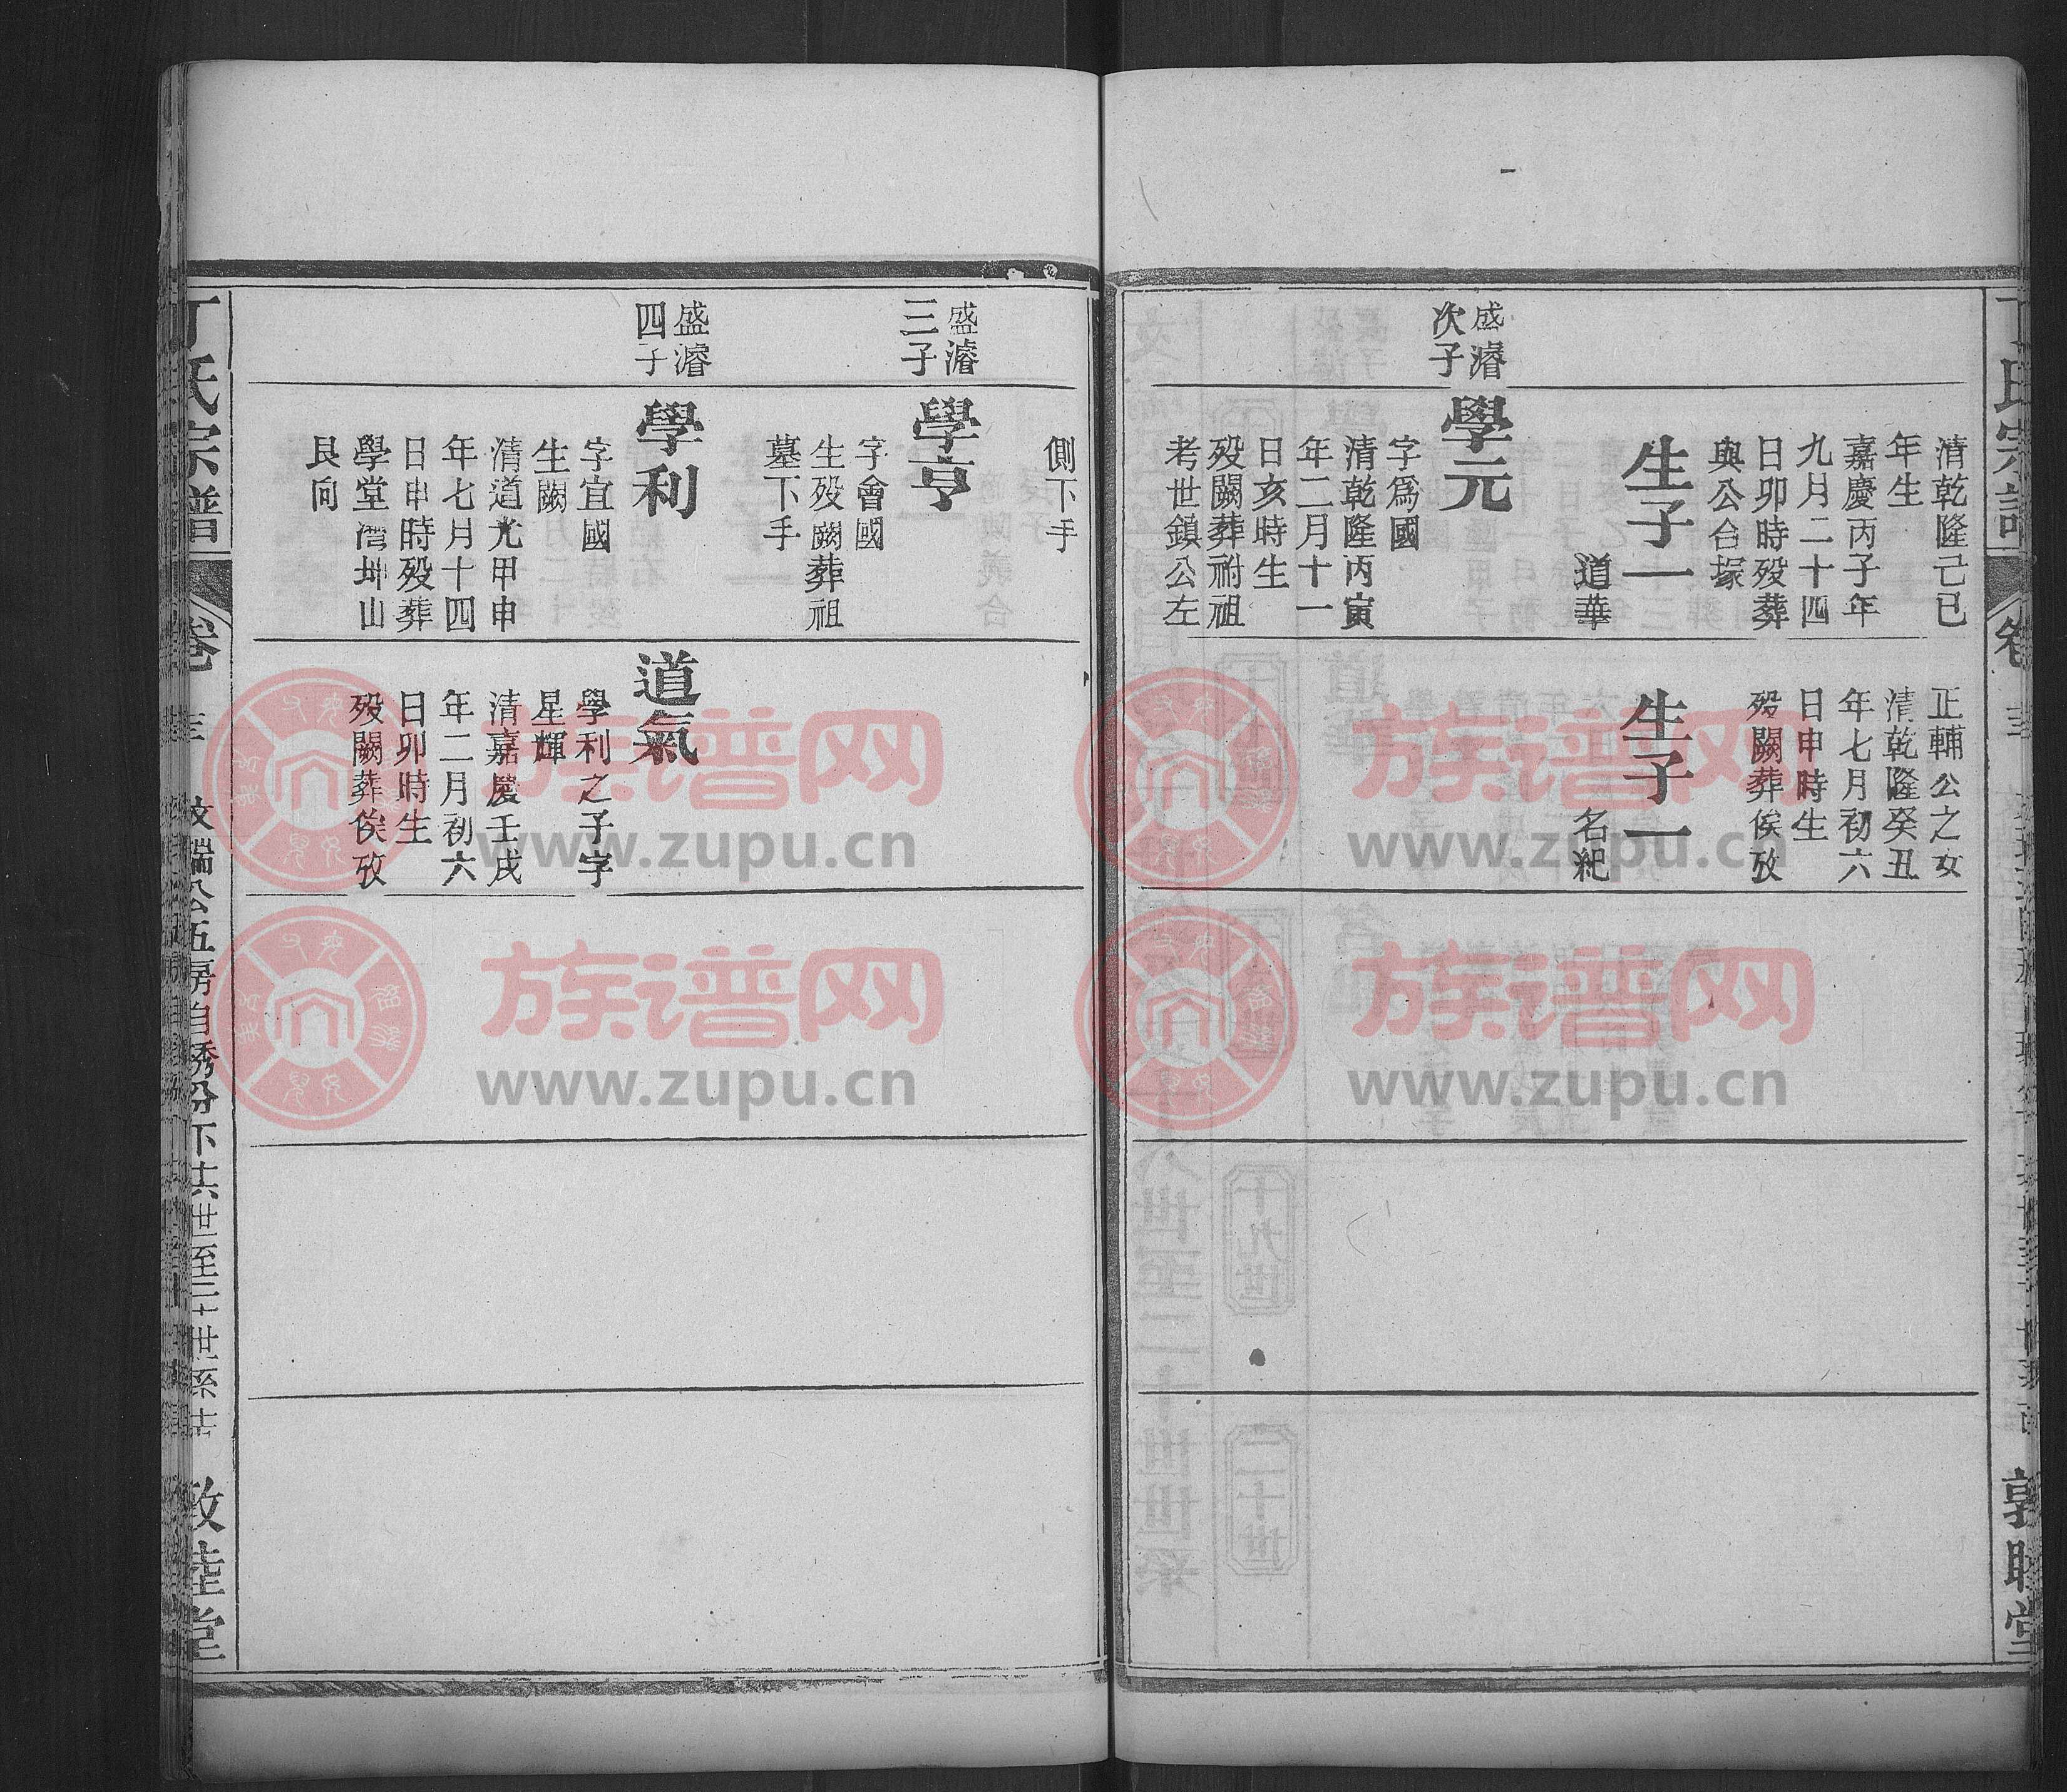 清乾隆己巳
年生
嘉慶丙子年
九月二十四
日卯時殁葬
與公合塚
生子一
道華
盛濬
次子
學元
字為國
清乾隆丙寅
年二月十一
日亥時生
殁闕葬祔祖
考世鎮公左
正輔公之女
清乾隆癸丑
年七月初六
日申時生
殁闕葬俟攷
生子一
名紀
側下手
盛濬
三子
學亨
字會國
生殁闕葬祖
墓下手
盛濬
四子
學利
字宜國
生闕
清道光甲申
年七月十四
日申時殁葬
學堂灣坤山
艮向
道氣
學利之子字
星輝
清嘉慶壬戌
年二月初六
日卯時生
殁闕葬俟攷
丁氏宗譜
卷
文瑞公五房自琇公下十六世至二十世系
敦睦堂
族谱网
www.zupu.cn
族谱网
www.zupu.cn
族谱网
www.zupu.cn
族谱网
www.zupu.cn